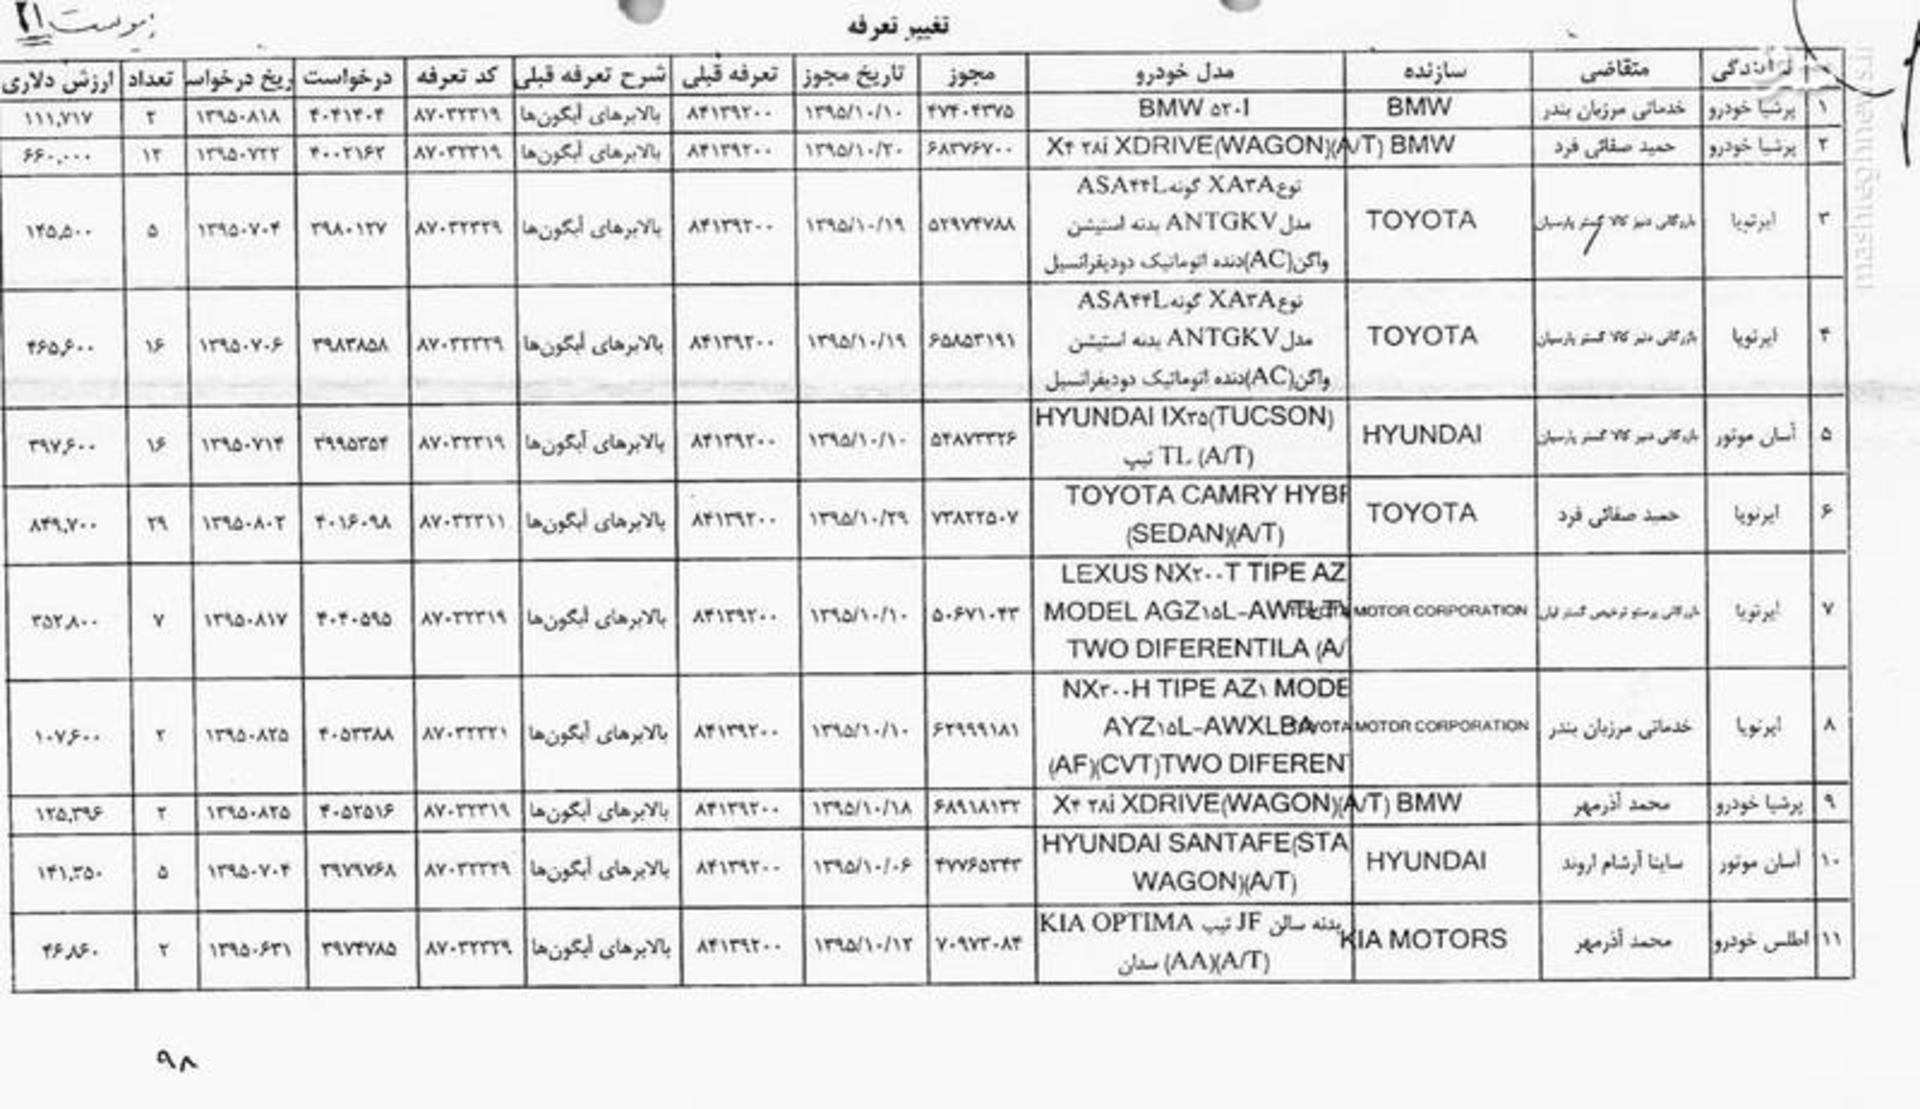 پیوست ۲۱
تغییر تعرفه
نمایندگی متقاضی سازنده مدل خودرو مجوز تاریخ مجوز تعرفه قبلی شرح تعرفه قبلی کد تعرفه درخواست ریخ درخواس تعداد ارزش دلاری
۱ پرشیا خودرو خدماتی مرزبان بندر BMW BMW ۵۲۰I ۴۷۴۰۴۳۷۵ ۱۳۹۵/۱۰/۱۰ ۸۴۱۳۹۲۰۰ بالابرهای آبگون‌ها ۸۷۰۳۲۳۱۹ ۴۰۴۱۴۰۴ ۱۳۹۵۰۸۱۸ ۲ ۱۱۱,۷۱۷
۲ پرشیا خودرو حمید صفائی فرد BMW X۴ ۲۸i XDRIVE(WAGON)(A/T) ۶۸۳۷۶۷۰۰ ۱۳۹۵/۱۰/۲۰ ۸۴۱۳۹۲۰۰ بالابرهای آبگون‌ها ۸۷۰۳۲۳۱۹ ۴۰۰۲۱۶۲ ۱۳۹۵۰۷۲۲ ۱۲ ۶۶۰,۰۰۰
نوع XA۳A گونه ASA۴۴L
۳ ایرتویا بازرگانی دنیز کالا گستر پارسیان TOYOTA مدل ANTGKV بدنه استیشن ۵۲۹۷۴۷۸۸ ۱۳۹۵/۱۰/۱۹ ۸۴۱۳۹۲۰۰ بالابرهای آبگون‌ها ۸۷۰۳۲۳۲۹ ۳۹۸۰۱۲۷ ۱۳۹۵۰۷۰۴ ۵ ۱۴۵,۵۰۰
واگن(AC)دنده اتوماتیک دودیفرانسیل
نوع XA۳A گونه ASA۴۴L
۴ ایرتویا بازرگانی دنیز کالا گستر پارسیان TOYOTA مدل ANTGKV بدنه استیشن ۶۵۸۵۳۱۹۱ ۱۳۹۵/۱۰/۱۹ ۸۴۱۳۹۲۰۰ بالابرهای آبگون‌ها ۸۷۰۳۲۲۲۹ ۳۹۸۳۸۵۸ ۱۳۹۵۰۷۰۶ ۱۶ ۴۶۵,۶۰۰
واگن(AC)دنده اتوماتیک دودیفرانسیل
HYUNDAI IX۳۵(TUCSON)
۵ آسان موتور بازرگانی دنیز کالا گستر پارسیان HYUNDAI تیپ TL (A/T) ۵۴۸۷۳۳۲۶ ۱۳۹۵/۱۰/۱۰ ۸۴۱۳۹۲۰۰ بالابرهای آبگون‌ها ۸۷۰۳۲۳۱۹ ۳۹۹۵۳۵۴ ۱۳۹۵۰۷۱۴ ۱۶ ۳۹۷,۶۰۰
TOYOTA CAMRY HYBR
۶ ایرتویا حمید صفائی فرد TOYOTA (SEDAN)(A/T) ۷۳۸۲۲۵۰۷ ۱۳۹۵/۱۰/۲۹ ۸۴۱۳۹۲۰۰ بالابرهای آبگون‌ها ۸۷۰۳۲۲۱۱ ۴۰۱۶۰۹۸ ۱۳۹۵۰۸۰۲ ۲۹ ۸۴۹,۷۰۰
LEXUS NX۲۰۰T TIPE AZ
۷ ایرتویا MOTOR CORPORATION MODEL AGZ۱۵L-AWTLT ۵۰۶۷۱۰۴۳ ۱۳۹۵/۱۰/۱۰ ۸۴۱۳۹۲۰۰ بالابرهای آبگون‌ها ۸۷۰۳۲۳۱۹ ۴۰۴۰۵۹۵ ۱۳۹۵۰۸۱۷ ۷ ۳۵۲,۸۰۰
TWO DIFERENTILA (A/
NX۳۰۰H TIPE AZ۱ MODE
۸ ایرتویا خدماتی مرزبان بندر TOYOTA MOTOR CORPORATION AYZ۱۵L-AWXLBA ۶۲۹۹۹۱۸۱ ۱۳۹۵/۱۰/۱۰ ۸۴۱۳۹۲۰۰ بالابرهای آبگون‌ها ۸۷۰۳۲۲۲۱ ۴۰۵۳۳۸۸ ۱۳۹۵۰۸۲۵ ۲ ۱۰۷,۶۰۰
(AF)(CVT)TWO DIFEREN
۹ پرشیا خودرو محمد آذرمهر BMW X۴ ۲۸i XDRIVE(WAGON)(A/T) ۶۸۹۱۸۱۳۲ ۱۳۹۵/۱۰/۱۸ ۸۴۱۳۹۲۰۰ بالابرهای آبگون‌ها ۸۷۰۳۲۳۱۹ ۴۰۵۲۵۱۶ ۱۳۹۵۰۸۲۵ ۲ ۱۲۵,۳۹۶
HYUNDAI SANTAFE(STA
۱۰ آسان موتور ساینا آرشام اروند HYUNDAI WAGON)(A/T) ۴۷۷۶۵۲۴۳ ۱۳۹۵/۱۰/۰۶ ۸۴۱۳۹۲۰۰ بالابرهای آبگون‌ها ۸۷۰۳۲۲۲۹ ۳۹۷۹۷۶۸ ۱۳۹۵۰۷۰۴ ۵ ۱۴۱,۲۵۰
KIA OPTIMA تیپ JF بدنه سالن
۱۱ اطلس خودرو محمد آذرمهر KIA MOTORS سدان (AA)(A/T) ۷۰۹۷۳۰۸۴ ۱۳۹۵/۱۰/۱۲ ۸۴۱۳۹۲۰۰ بالابرهای آبگون‌ها ۸۷۰۳۲۲۲۹ ۳۹۷۴۷۸۵ ۱۳۹۵۰۶۳۱ ۲ ۴۶,۸۶۰
۹۸
mashreghnews.ir